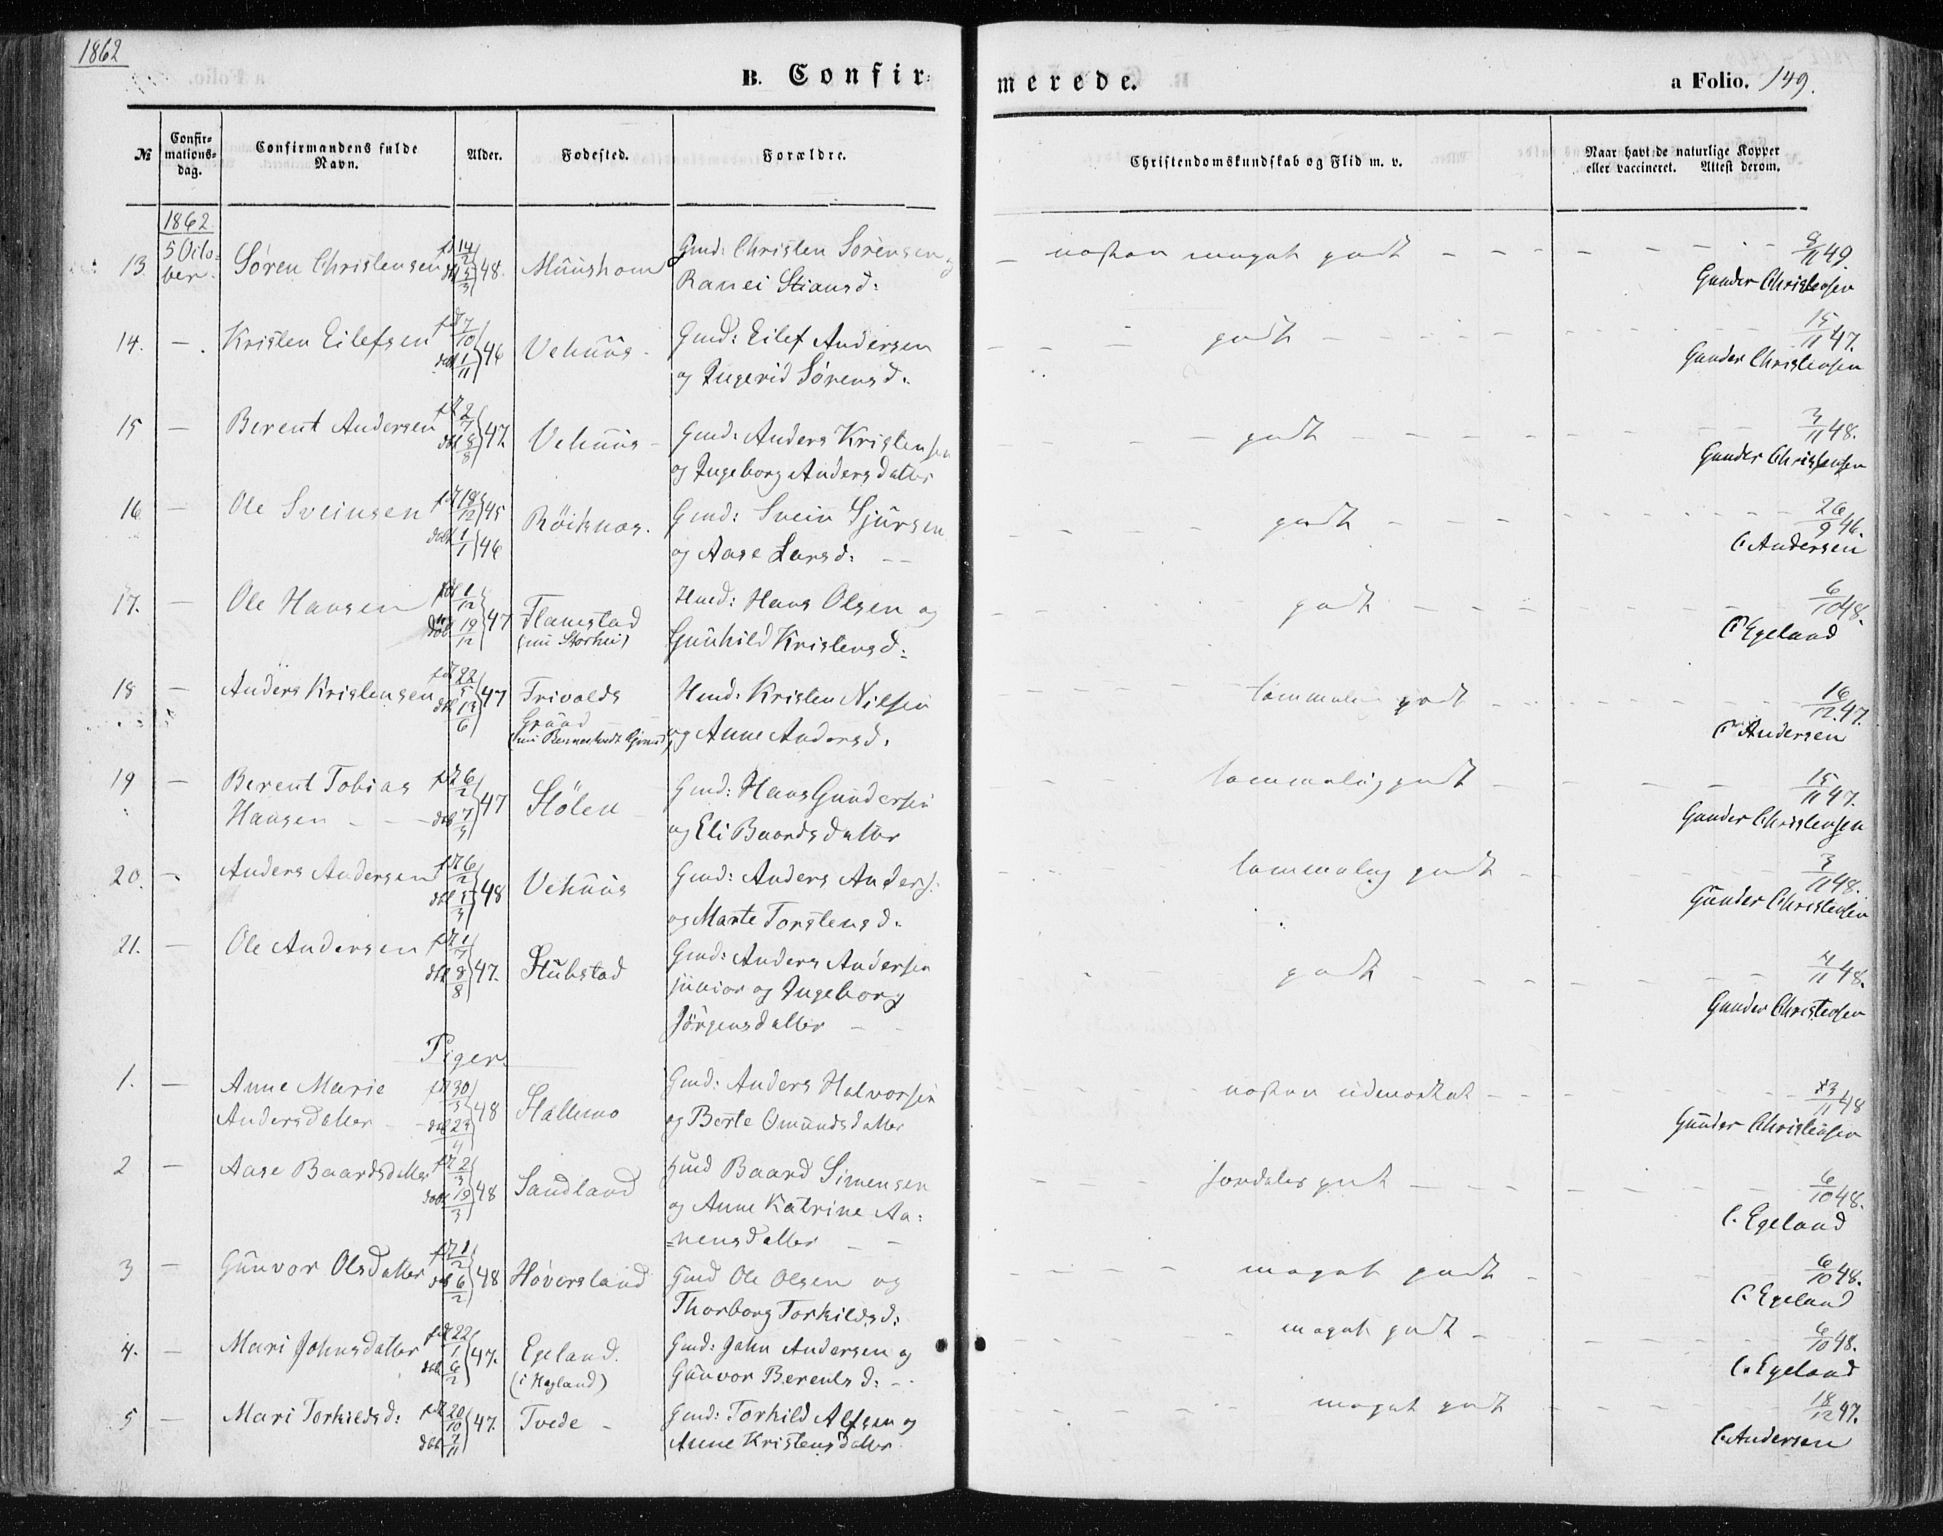 1862
B. Confir=
merede.
a Folio. 149.
№
Confir=
mations=
dag.
Confirmandens fulde
Navn.
Alder.
Fødested.
Forældre.
Christendomskundskab og Flid m. v.
Naar havt de naturlige Kopper
eller vaccineret. Attest derom.
1862
13. 5 Octo=
ber. Søren Christensen fd 14/2 døbt 5/3 48. Muushom Gmd: Christen Sørensen og
Ranei Stiansd: næsten meget godt 8/11 49.
Gunder Christensen
14. — Kristen Eilefsen fdt 7/10 døbt 1/11 46 Vehuus Gmd: Eilef Andersen
og Ingerid Sørensd. godt 15/11 47.
Gunder Christensen
15 — Berent Andersen fdt 2/7 døbt 8/8 47. Vehuus Gmd: Anders Kristensen
og Ingeborg Andersdatter godt 3/11 48.
Gunder Christensen
16 — Ole Sveinsen fdt 18/12 45 døbt 1/1 46 Röiknæs. Gmd: Svein Sjursen
og Aase Larsd: godt 26/9 46.
C. Andersen
17. — Ole Hansen fdt 1/12 døbt 19/12 47 Flamstad
Hmd: Hans Olsen og
Gunhild Kristensd: godt 6/10 48.
C Egeland
18 — Anders Kristensen fdt 22/5 døbt 13/6 47 Trivolds
Grund
Hmd: Kristen Nilsen
og Anne Andersd. temmelig godt 16/12 47.
C Andersen
19 — Berent Tobias
Hansen fdt 6/2 døbt 7/3 47 Stölen Gmd: Hans Gundersen
og Eli Baardsdatter temmelig godt 15/11 47.
Gunder Christensen
20. — Anders Andersen fdt 6/2 døbt 5/3 48 Vehuus Gmd: Anders Anders.
og Marte Torstensd. temmelig godt 3/11 48.
Gunder Christensen
21. — Ole Andersen fdt 1/7 døbt 8/8 47. Stubstad Gmd: Anders Andersen
junior og Ingeborg
Jörgensdatter godt 4/11 48.
Gunder Christensen
Piger.
1. — Anne Marie
Andersdatter fdt 30/3 døbt 23/4 48 Stallemo Gmd: Anders Halvorsen
og Berte Omundsdatter næsten udmærket 3/11 48
Gunder Christensen
2 — Aase Baardsdatter fdt 2/3 døbt 19/3 48 Sandland Hmd Baard Simensen
og Anne Katrine Aa=
=nensdatter særdeles godt 6/10 48.
C. Egeland
3 — Gunvor Olsdatter fdt 1/2 døbt 6/2 48 Höversland Gmd Ole Olsen og
Thorborg Torkildsd: meget godt 6/10 48.
C. Egeland
4. — Mari Johnsdatter fdt 22/1 døbt 6/2 47. Egeland.
(i Hægland) Gmd: John Andersen og
Gunvor Berentsd: meget godt 6/10 48.
C. Egeland
5 — Mari Torkildsd: fdt 20/10 døbt 7/11 47. Tvede Gmd: Torkild Alfsen og
Anne Kristensdatter. meget godt 18/12 47.
C. Andersen